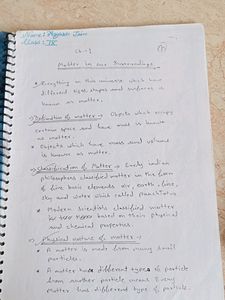 Name: Ayush Jain
Class: IX
Ch-1
Matter in our Surroundings
* Everything in this universe which have
different size, shapes and surfaces is
known as matter.
→ Defination of matter → Objects which occupy
certain space and have mass is known
as matter.
* Objects which have mass and volume
is known as matter.
→ Classification of Matter → Early indian
philosophers classified matter in the form
of five basic elements air, earth, fire,
sky and water which called panchtatva
* Modern scientists classified matter
in two types based on their physical
and chemical properties.
→ Physical nature of matter →
* A matter is made from many small
particles.
* A matter has different types of particle
from another particle means Every
Matter has different type of particle.